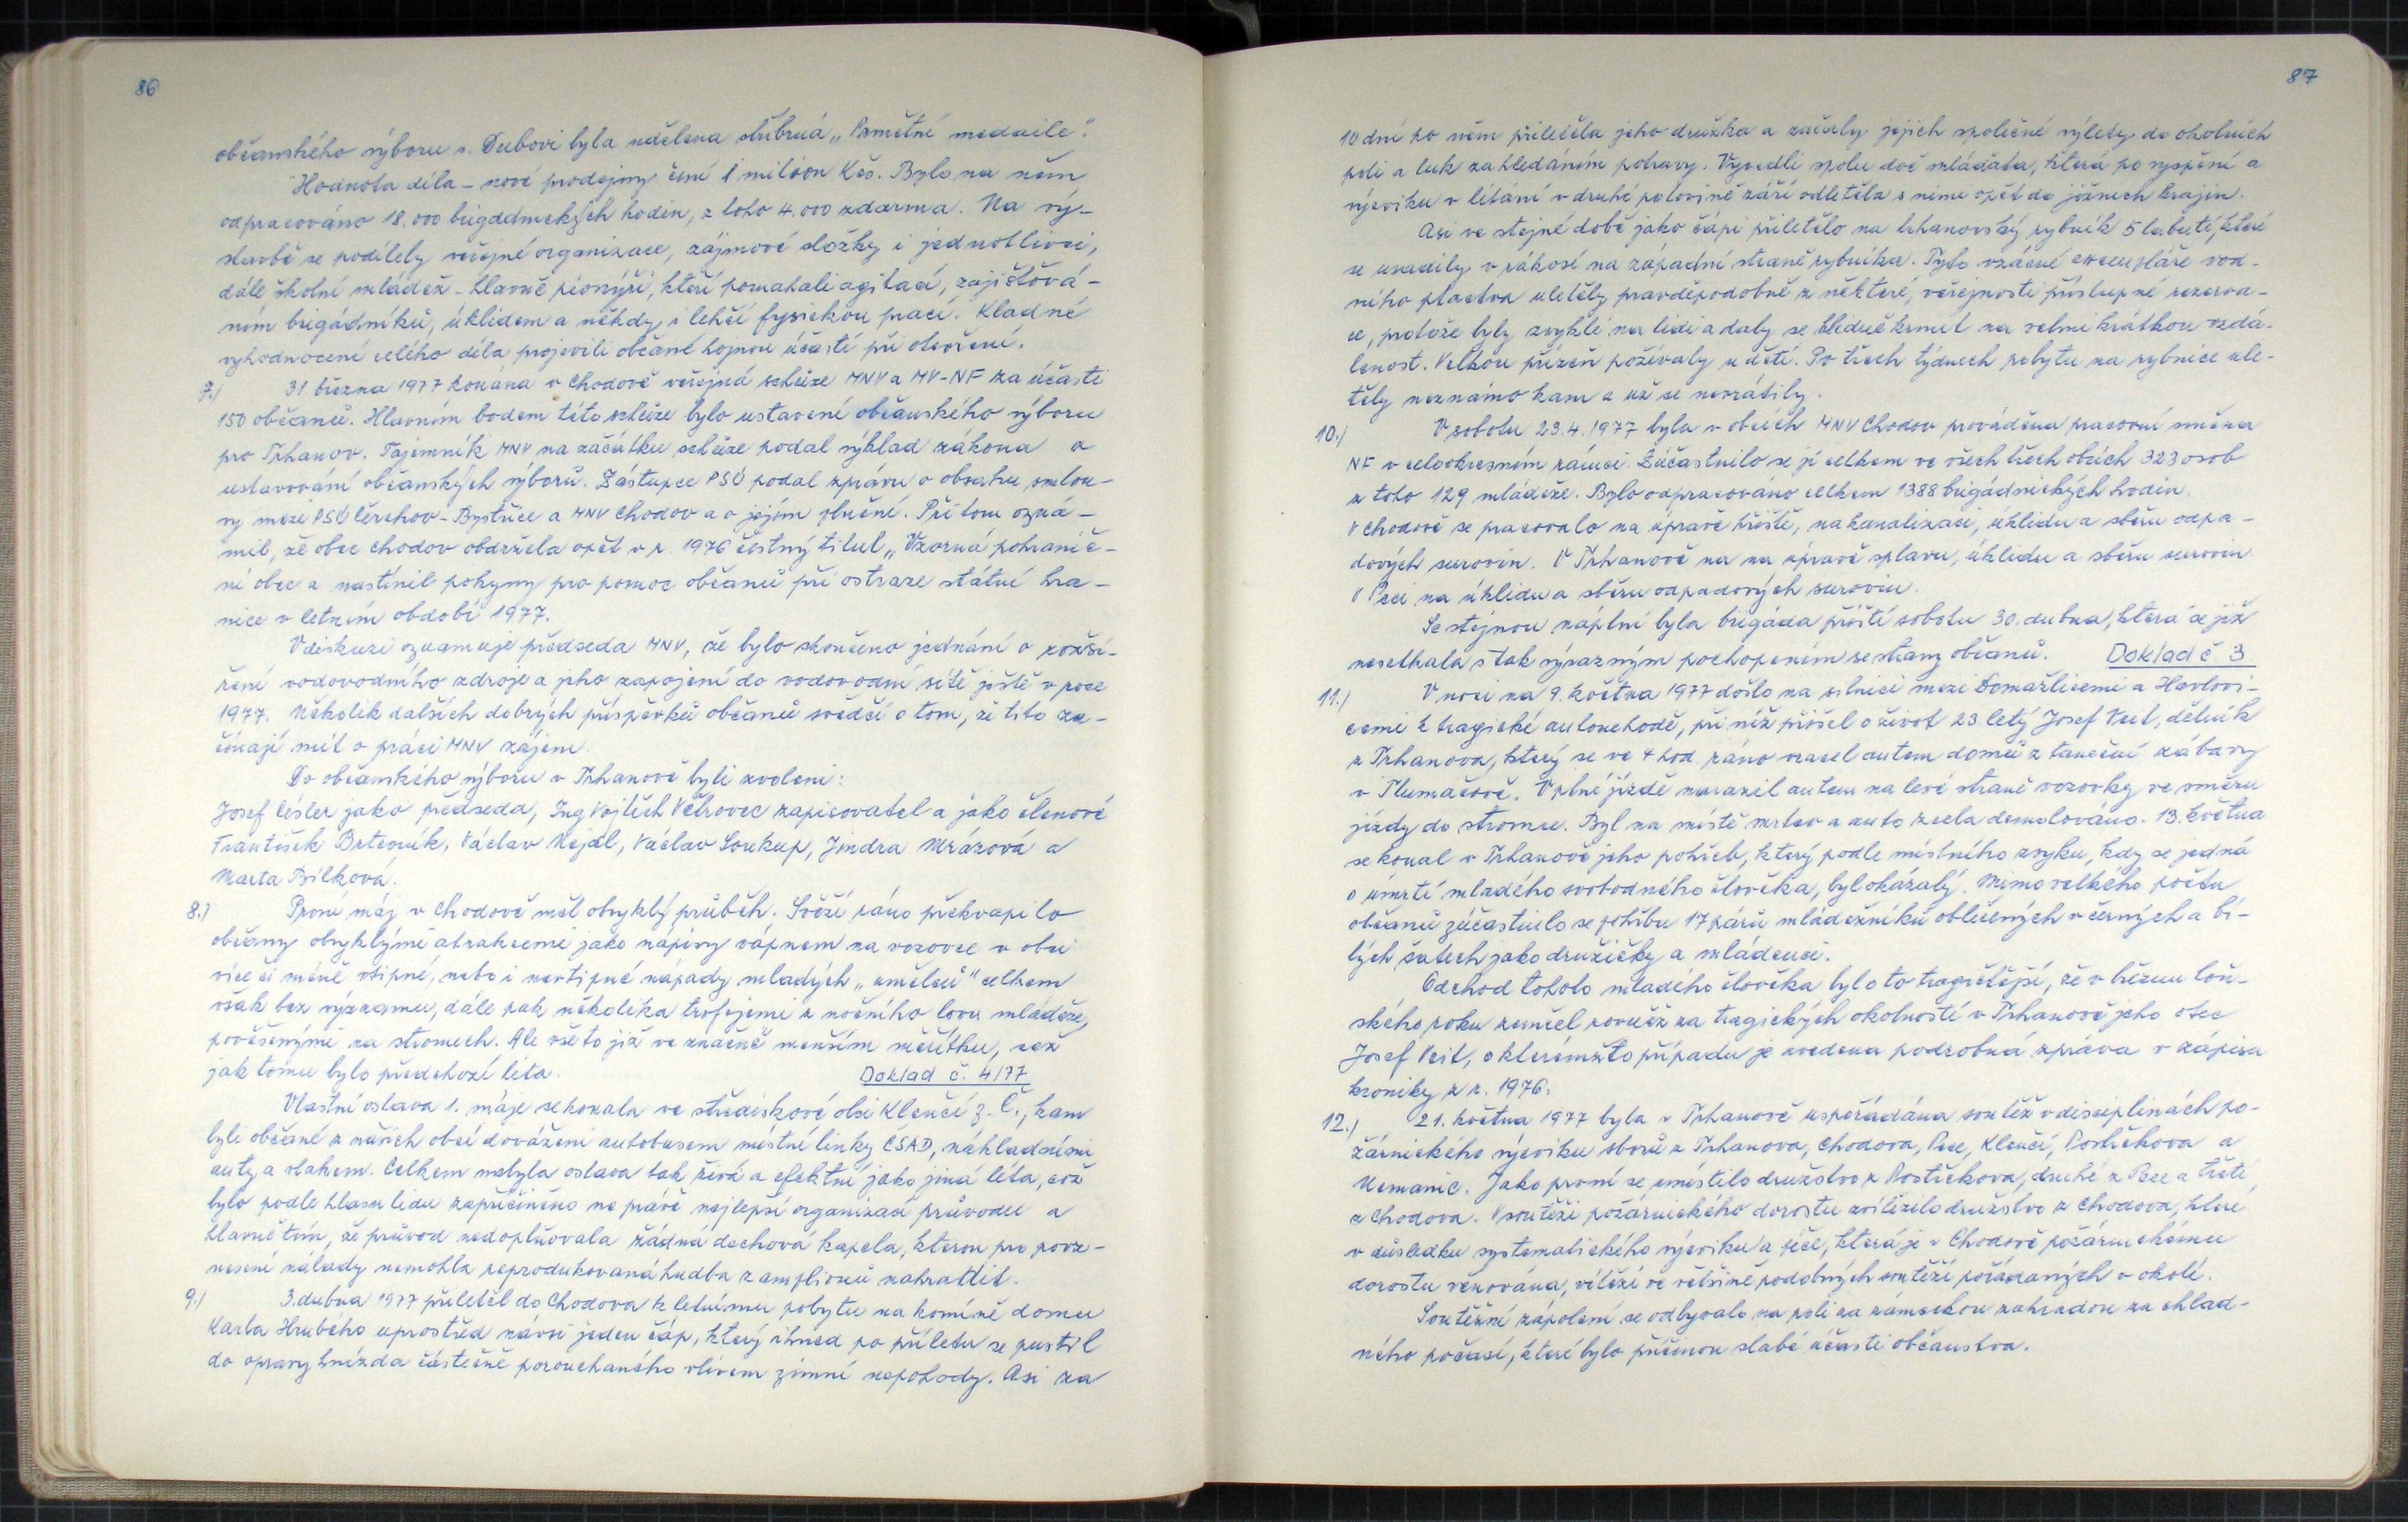 86
občanského výboru s. Dubovi byla udělena stříbrná „Pamětní medaile".
Hodnota díla - nové prodejny činí 1 milion Kčs. Bylo na něm
odpracováno 18.000 brigádnických hodin, z toho 4.000 zdarma. Na vý-
stavbě se podílely veřejné organizace, zájmové složky i jednotlivci,
dále školní mládež - hlavně pionýři, kteří pomahali agitací, zajišťová-
ním brigádníků, úklidem a někdy i lehčí fysickou prací. Kladné
vyhodnocení celého díla projevili občané hojnou účastí při otevření.
7./ 31 března 1977 konána v Chodově veřejná schůze MNV a MV-NF za účasti
150 občanů. Hlavním bodem této schůze bylo ustavení občanského výboru
pro Trhanov. Tajemník MNV na začátku schůze podal výklad zákona o
ustavování občanských výborů. Zástupce PSÚ podal zprávu o obsahu smlou-
vy mezi PSÚ Čerchov - Bystřice a MNV Chodov a o jejím plnění. Při tom ozná-
mil, že obec Chodov obdržela opět v r. 1976 čestný titul „Vzorná pohranič-
ní obec a nastínil pokyny pro pomoc občanů při ostraze státní hra-
nice v letním období 1977.
V diskuzi oznamuje předseda MNV, že bylo skončeno jednání o rozší-
ření vodovodního zdroje a jeho zapojení do vodovodní sítě ještě v roce
1977. Několik dalších dobrých příspěvků občanů svědčí o tom, že tito za-
čínají mít o práci MNV zájem.
Do občanského výboru v Trhanově byli zvoleni:
Josef Cisler jako předseda, Ing Vojtěch Větrovec zapisovatel a jako členové
František Brtevník, Václav Hájal, Václav Soukup, Jindra Mrázová a
Marta Bílková.
8./ První máj v Chodově měl obvyklý průběh. Svěží ráno překvapilo
občany obvyklými atrakcemi jako nápisy vápnem na vozovce v obci
více či méně vtipné, nebo i nevtipné nápady mladých „umělců" celkem
však bez významu, dále pak několika trofejemi z nočního lovu mládeže,
pověšenými na stromech. Ale vše to již ve značně menším měřítku, než
jak tomu bylo předchozí léta. Doklad č. 4/77
Vlastní oslava 1. máje se konala ve střediskové obci Klenčí p. Č., kam
byli občané z našich obcí dováženi autobusem místní linky ČSAD, nákladními
auty a vlakem. Celkem nebyla oslava tak živá a efektní jako jiná léta, což
bylo podle hlasu lidu zapříčiněno ne právě nejlepší organizací průvodu a
hlavně tím, že průvod nedoplňovala žádná dechová kapela, kterou pro povz-
nesení nálady nemohla reprodukovaná hudba z amplionů nahradit.
9./ 3. dubna 1977 přiletěl do Chodova k letnímu pobytu na komíně domu
Karla Hrubého uprostřed návsi jeden čáp, který ihned po příletu se pustil
do opravy hnízda částečně porouchaného vlivem zimní nepohody. Asi za
87
10 dní po něm přiletěla jeho družka a začaly jejich společné výlety do okolních
polí a luk za hledáním potravy. Vyvedli spolu dvě mláďata, která po vyspění a
výcviku v létání v druhé polovině září odletěla s nimi opět do jižních krajin.
Asi ve stejné době jako čápi přiletělo na trhanovský rybník 5 labutí, které
se usadily v rákosí na západní straně rybníka. Tyto vzácné exempláře vod-
ního ptactva uletěly pravděpodobně z některé, veřejnosti přístupné rezerva-
ce, protože byly zvyklé na lidi a daly se klidně krmit na velmi krátkou vzdá-
lenost. Velkou přízeň požívaly u dětí. Po třech týdnech pobytu na rybníce ule-
těly neznámo kam a už se nevrátily.
10./ V sobotu 23.4.1977 byla v obcích MNV Chodov prováděna pracovní směna
NF v celookresním rámci. Zúčastnilo se jí celkem ve všech třech obcích 323 osob
z toho 129 mládeže. Bylo odpracováno celkem 1388 brigádnických hodin.
V Chodově se pracovalo na úpravě hřiště, na kanalizaci, úklidu a sběru odpa-
dových surovin. V Trhanově na na úpravě splavu, úklidu a sběru surovin
V Peci na úklidu a sběru odpadových surovin.
Se stejnou náplní byla brigáda příští sobotu 30. dubna, která se již
nesetkala s tak výrazným pochopením se strany občanů. Doklad č. 3
11./ V noci na 9. května 1977 došlo na silnici mezi Domažlicemi a Havlovi-
cemi k tragické autonehodě, při níž přišel o život 23 letý Josef Veit, dělník
z Trhanova, který se ve 4 hod. ráno vracel autem domů z taneční zábavy
v Tlumačově. V plné jízdě narazil autem na levé straně vozovky ve směru
jízdy do stromu. Byl na místě mrtev a auto zcela demolováno. 13. května
se konal v Trhanově jeho pohřeb, který podle místního zvyku, kdy se jedná
o úmrtí mladého svobodného člověka, byl okázalý. Mimo velkého počtu
občanů zúčastnilo se pohřbu 17 párů mládežníků oblečených v černých a bí-
lých šatech jako družičky a mládenci.
Odchod tohoto mladého člověka bylo to tragičtější, že v březnu loň-
ského roku zemřel rovněž za tragických okolností v Trhanově jeho otec
Josef Veit, o kterémžto případu je uvedena podrobná zpráva v zápisu
kroniky z r. 1976.
12./ 21. května 1977 byla v Trhanově uspořádána soutěž v disciplinách po-
žárnického výcviku sborů z Trhanova, Chodova, Pece, Klenčí, Postřekova a
Nemanic. Jako první se umístilo družstvo z Postřekova, druhé z Pece a třetí
z Chodova. V soutěži požárnického dorostu zvítězilo družstvo z Chodova, které
v důsledku systematického výcviku a péče, která je v Chodově požárnickému
dorostu věnována, vítězí ve většině podobných soutěží pořádaných v okolí.
Soutěžní zápolení se odbývalo na poli za zámeckou zahradou za chlad-
ného počasí, které bylo příčinou slabé účasti občanstva.